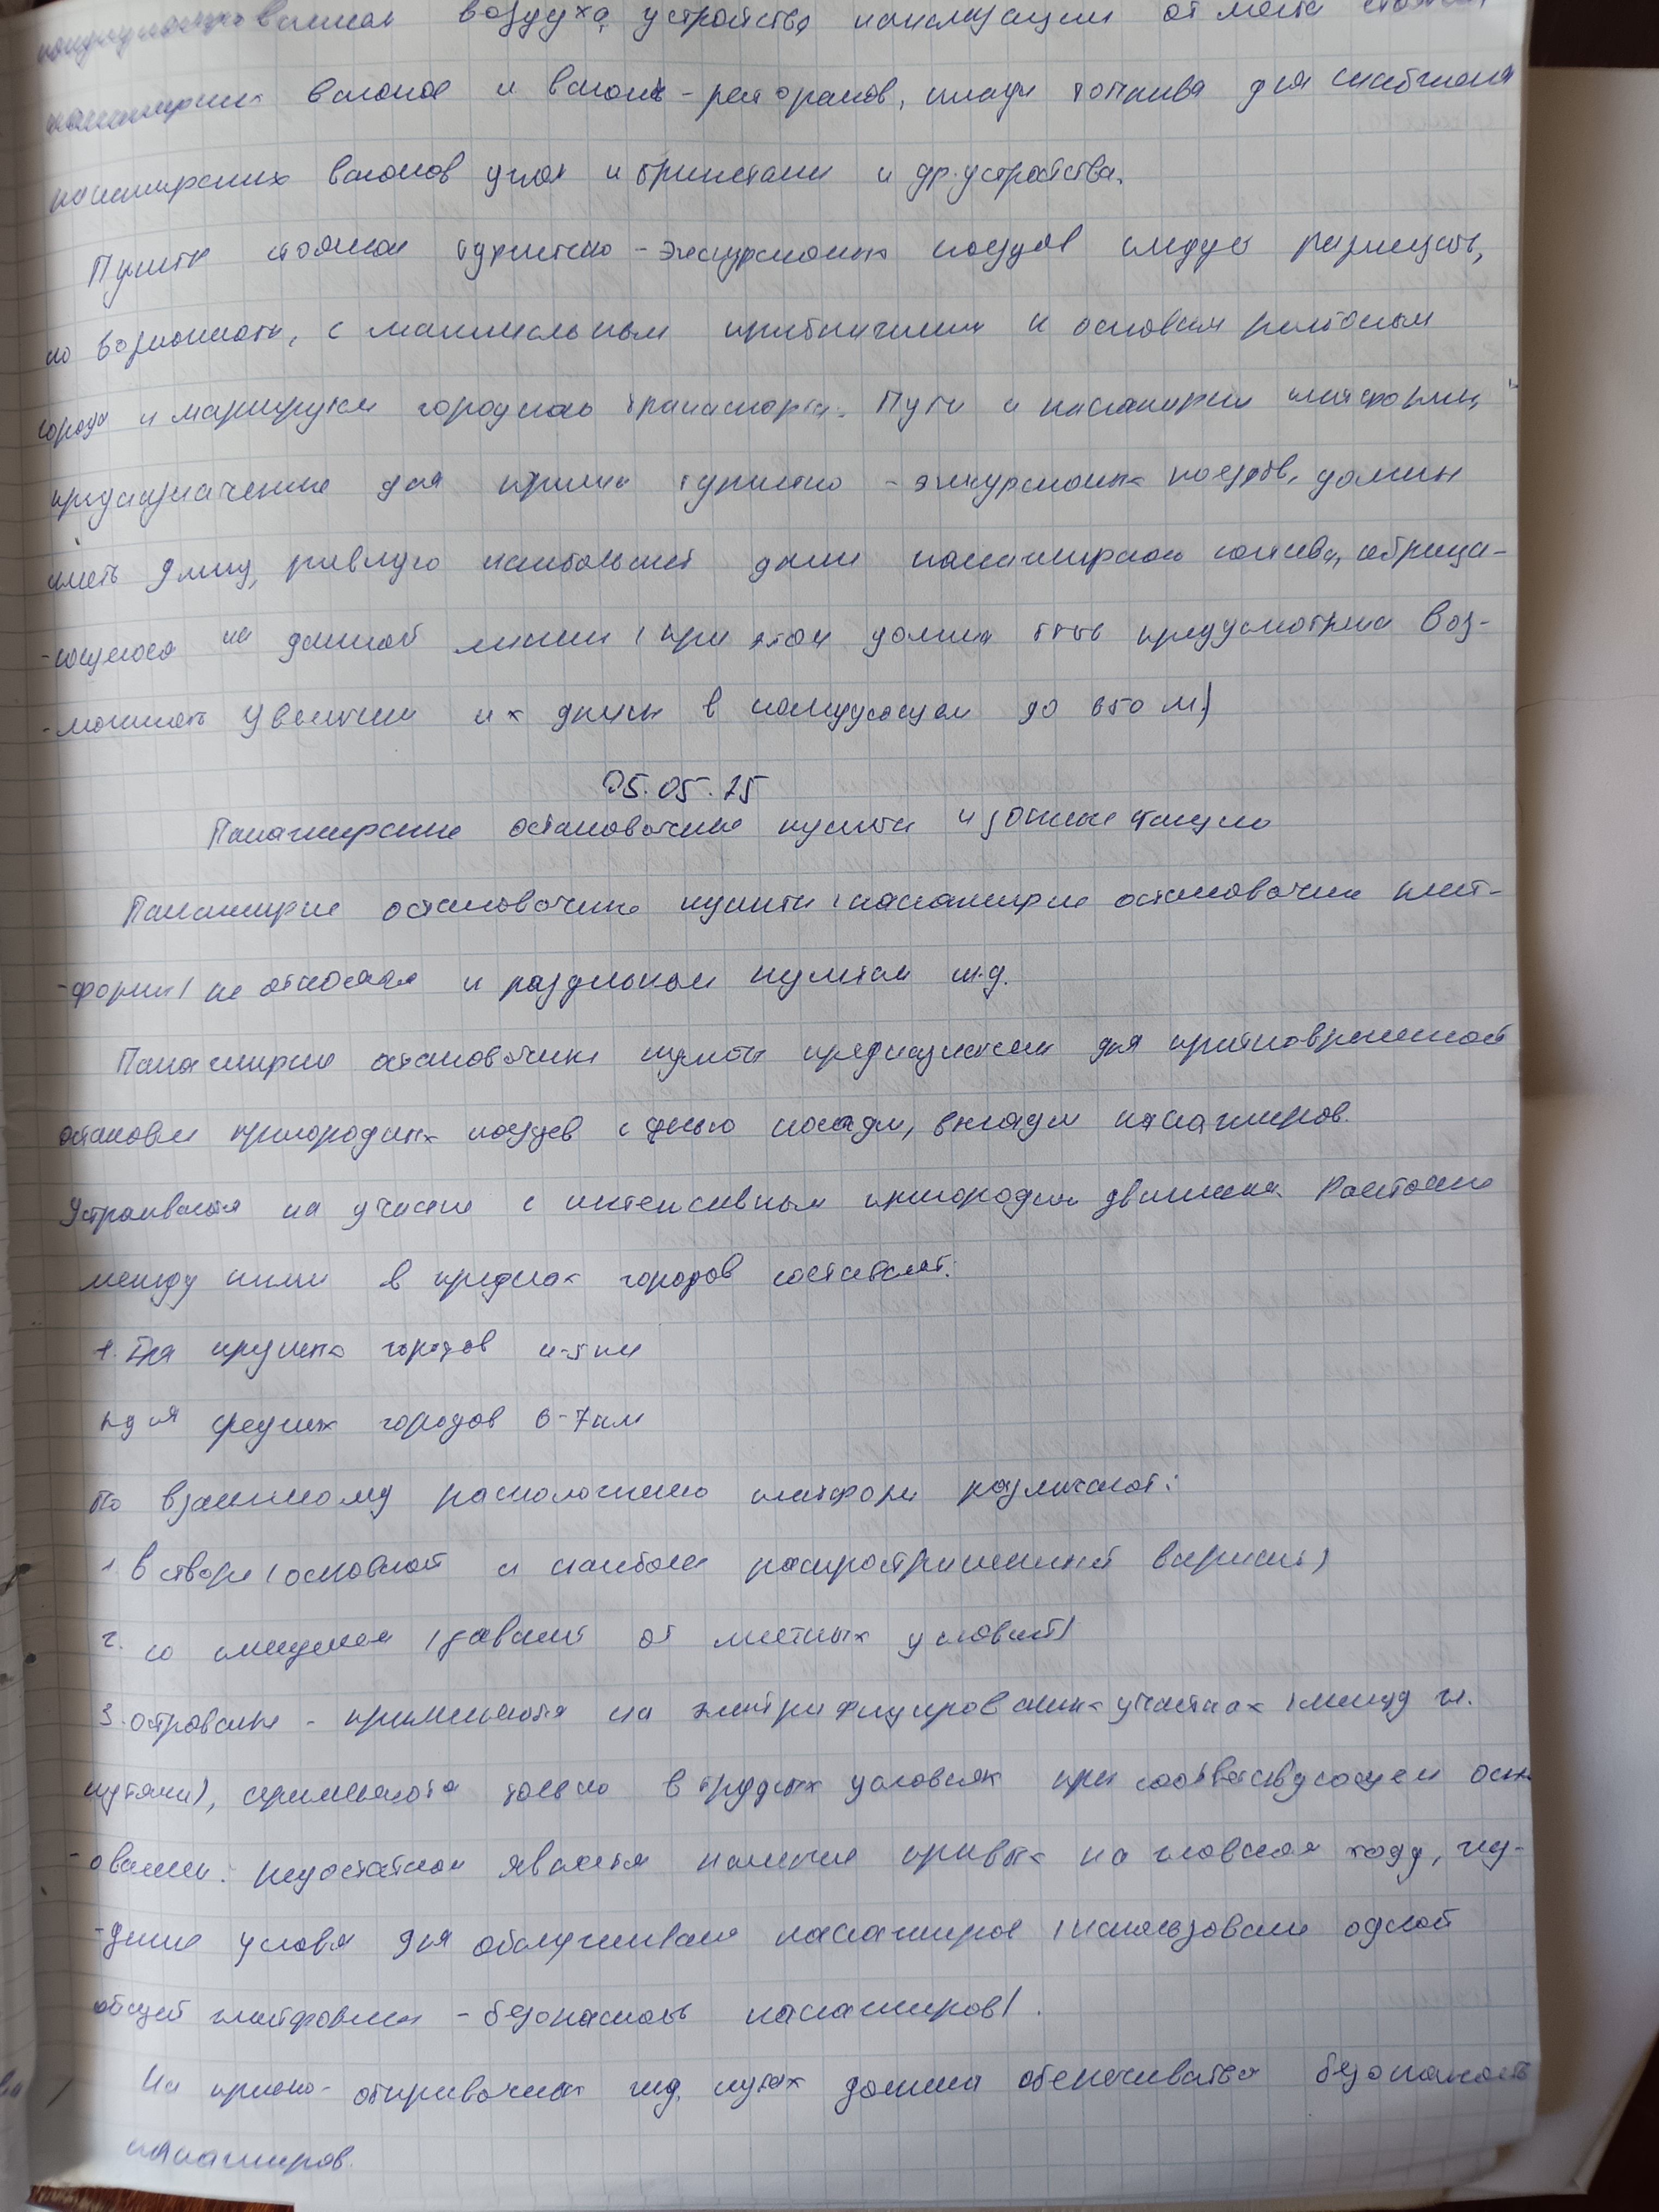 воздуха, устройства канализации от места стоянки
вагонов и вагонов-ресторанов, склады топлива для снабжения
пассажирских вагонов углем и брикетами и др. устройства.
Пункты стоянки туристско-экскурсионных поездов следует размещать,
по возможности, с максимальным приближением к основным районам
города и маршрутам городского транспорта. Пути и пассажирские платформы,
предназначенные для приема туристско-экскурсионных поездов, должны
иметь длину, равную наибольшей длине пассажирского состава, обраща-
-ющегося на данной линии (при этом должна быть предусмотрена воз-
-можность увеличения их длины в последующем до 650 м)
05.05.25
Пассажирские остановочные пункты и зонные станции
Пассажирские остановочные пункты (пассажирские остановочные плат-
-формы) не относятся к раздельным пунктам ж.д.
Пассажирские остановочные пункты предназначены для кратковременной
остановки пригородных поездов с целью посадки, высадки пассажиров.
Устраиваются на участке с интенсивным пригородным движением. Расстояние
между ними в пределах городов составляет:
1. Для крупных городов 4-5 км
для средних городов 6-7 км
По взаимному расположению платформ различают:
1. В створе (основной и наиболее распространенный вариант)
2. со смещением (зависит от местных условий)
3. островные - применяются на электрифицированных участках (между гл.
путями), применяются только в трудных условиях при соответствующем осн-
-овании. Недостатком является наличие кривых на главном ходу, худ-
-шие условия для обслуживания пассажиров (использование одной
общей платформы - безопасность пассажиров).
На приемо-отправочных ж.д. путях должна обеспечиваться безопасность
пассажиров.